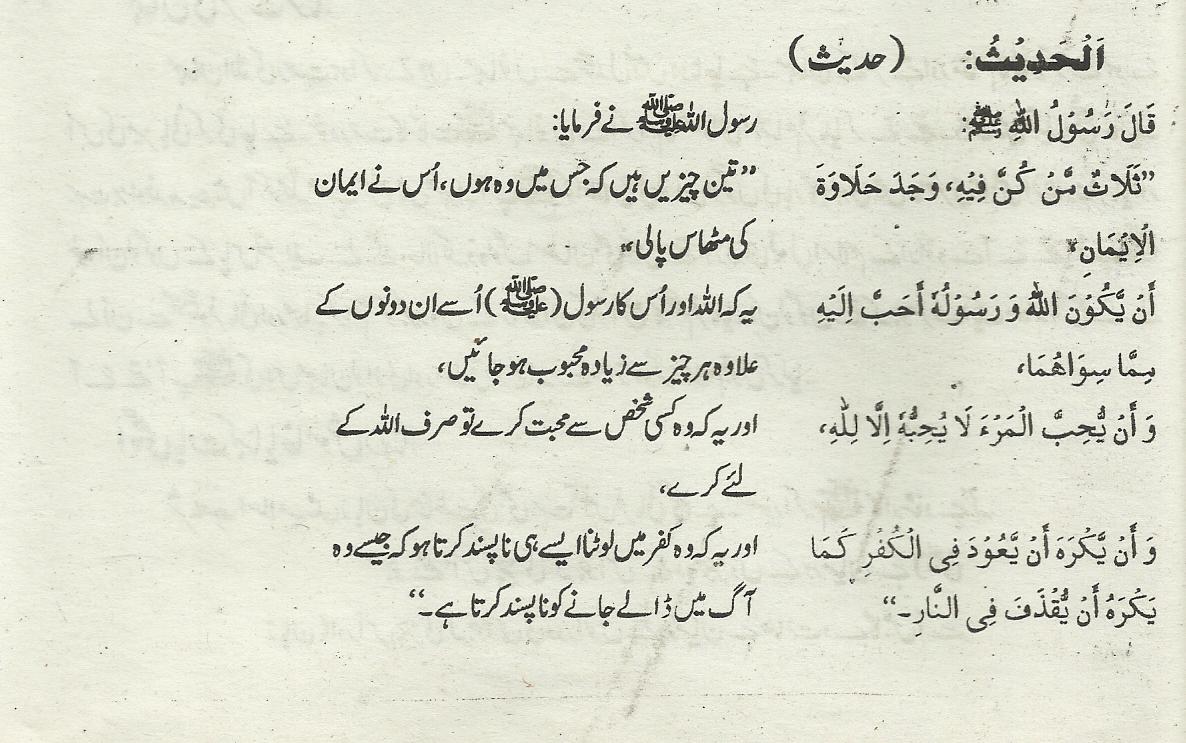 اَلْحَدِيْثُ: (حدیث)
قَالَ رَسُوْلُ اللّٰهِ ﷺ: رسول اللہ ﷺ نے فرمایا:
”ثَلَاثٌ مَّنْ كُنَّ فِيْهِ، وَجَدَ حَلَاوَةَ ”تین چیزیں ہیں کہ جس میں وہ ہوں، اُس نے ایمان
الْاِيْمَانِ، کی مٹھاس پالی،
أَنْ يَّكُوْنَ اللّٰهُ وَ رَسُوْلُهٗ أَحَبَّ اِلَيْهِ یہ کہ اللہ اور اُس کا رسول (ﷺ) اُسے ان دونوں کے
مِمَّا سِوَاهُمَا، علاوہ ہر چیز سے زیادہ محبوب ہو جائیں،
وَ أَنْ يُّحِبَّ الْمَرْءَ لَا يُحِبُّهٗ اِلَّا لِلّٰهِ، اور یہ کہ وہ کسی شخص سے محبت کرے تو صرف اللہ کے
لئے کرے،
وَ أَنْ يَّكْرَهَ أَنْ يَّعُوْدَ فِى الْكُفْرِ كَمَا اور یہ کہ وہ کفر میں لوٹنا ایسے ہی ناپسند کرتا ہو کہ جیسے وہ
يَكْرَهُ أَنْ يُّقْذَفَ فِى النَّارِ۔“ آگ میں ڈالے جانے کو ناپسند کرتا ہے۔“